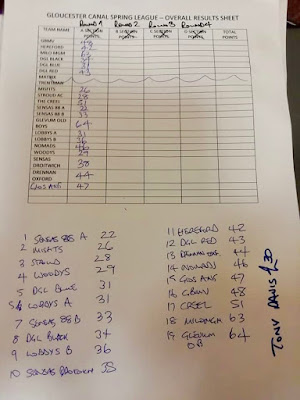 GLOUCESTER CANAL SPRING LEAGUE – OVERALL RESULTS SHEET
Round 1 Round 2 Round 3 Round 4
TEAM NAME A SECTION POINTS B SECTION POINTS C SECTION POINTS D SECTION POINTS TOTAL POINTS
GBMV 48
HEREFORD 42
MILO MSUM 63
DGL BLACK 34
DGL BLUE 31
DGL RED 43
MATRIX
TRENTMAN
MISFITS 26
STROUD AC 28
THE CREEL 51
SENSAS 88 A 22
SENSAS 88 B 33
GLEVUM OLD BOYS 64
LOBBYS A 31
LOBBYS B 36
NOMADS 46
WOODYS 29
SENSAS DROITWICH 38
DRENNAN OXFORD 44
GLOS ANG 47
1 SENSAS 88 A 22
2 MISFITS 26
3 STROUD 28
4 WOODYS 29
5 DGL BLUE 31
LOBBYS A 31
7 SENSAS 88 B 33
8 DGL BLACK 34
9 LOBBYS B 36
10 SENSAS 38
11 HEREFORD 42
12 DGL RED 43
13 DRENNAN OXF. 44
14 NOMADS 46
15 GLOS ANG 47
16 48
17 CREEL 51
18 63
19 GLEVUM OB 64
TONY DAVIS